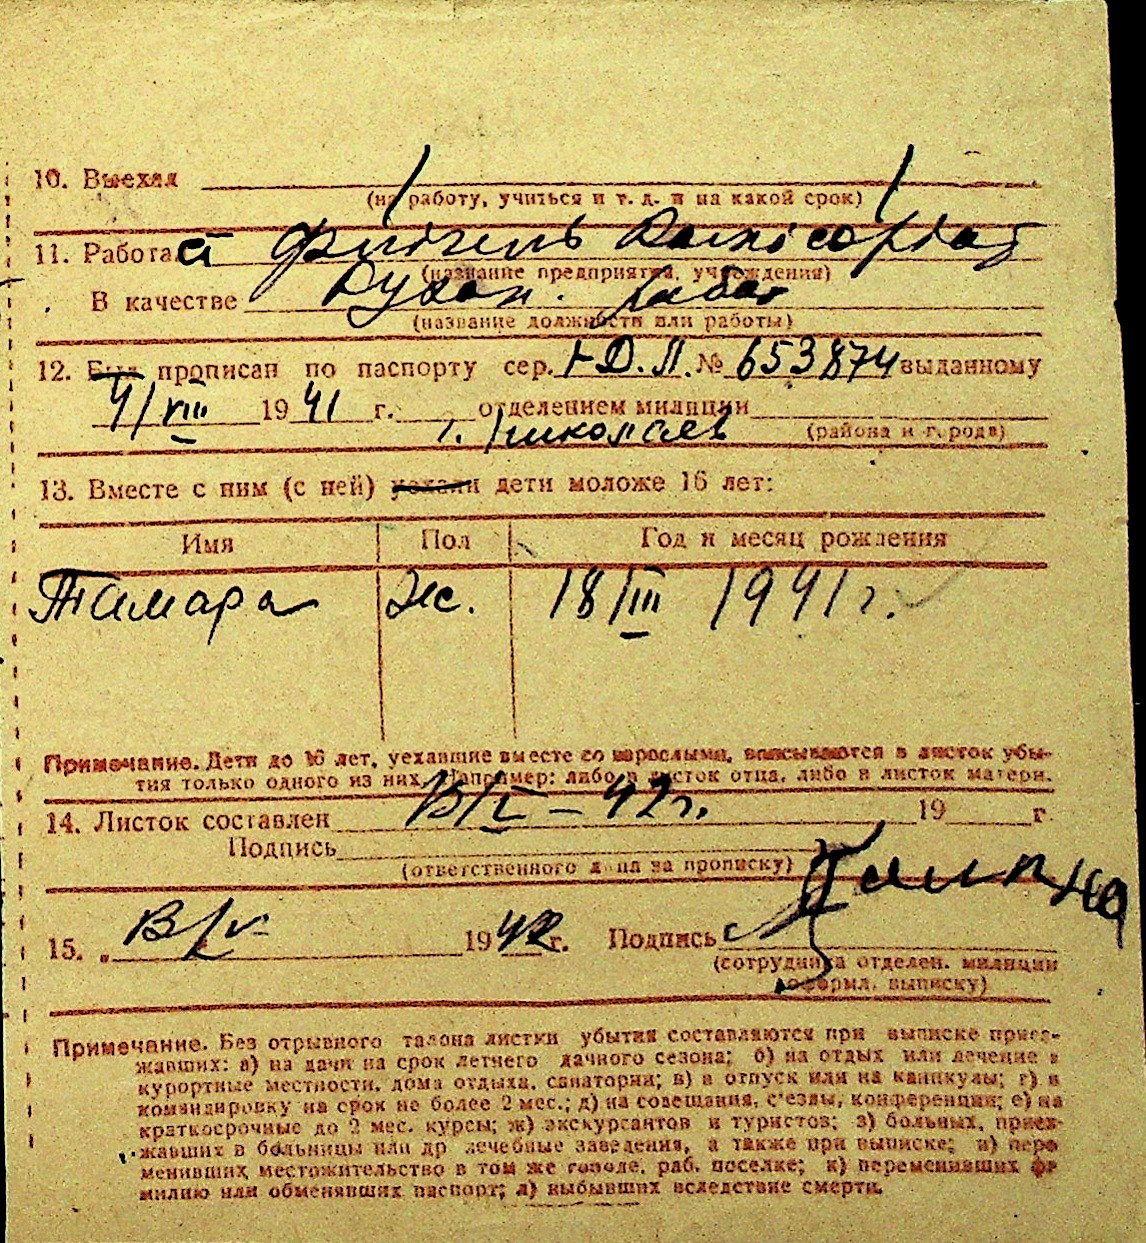 10. Выехал
(на работу, учиться и т. д. и на какой срок)
11. Работает
(название предприятия, учреждения)
В качестве Рукоп. работ
(название должности или работы)
12. Был прописан по паспорту сер. I-Ю.Л. № 653874 выданному
4/VIII 1941 г. отделением милиции
г. Николаев (района и города)
13. Вместе с ним (с ней) уехали дети моложе 16 лет:
Имя Пол Год и месяц рождения
Тамара Жс. 18/III 1941 г.
Примечание. Дети до 16 лет, уехавшие вместе со взрослыми, вписываются в листок убы-
тия только одного из них. Например: либо в листок отца, либо в листок матери.
14. Листок составлен 13/V – 42 г. 19 г.
Подпись
(ответственного лица за прописку)
15. „ 13/V 1942 г. Подпись
(сотрудника отделен. милиции
оформл. выписку)
Примечание. Без отрывного талона листки убытия составляются при выписке приез-
жавших: а) на дачи на срок летнего дачного сезона; б) на отдых или лечение в
курортные местности, дома отдыха, санатории; в) в отпуск или на каникулы; г) в
командировку на срок не более 2 мес.; д) на совещания, с'езды, конференции; е) на
краткосрочные до 2 мес. курсы; ж) экскурсантов и туристов; з) больных, приез-
жавших в больницы или др лечебные заведения, а также при выписке; и) пере
менивших местожительство в том же городе, раб. поселке; к) переменивших фа
милию или обменявших паспорт; л) выбывших вследствие смерти.